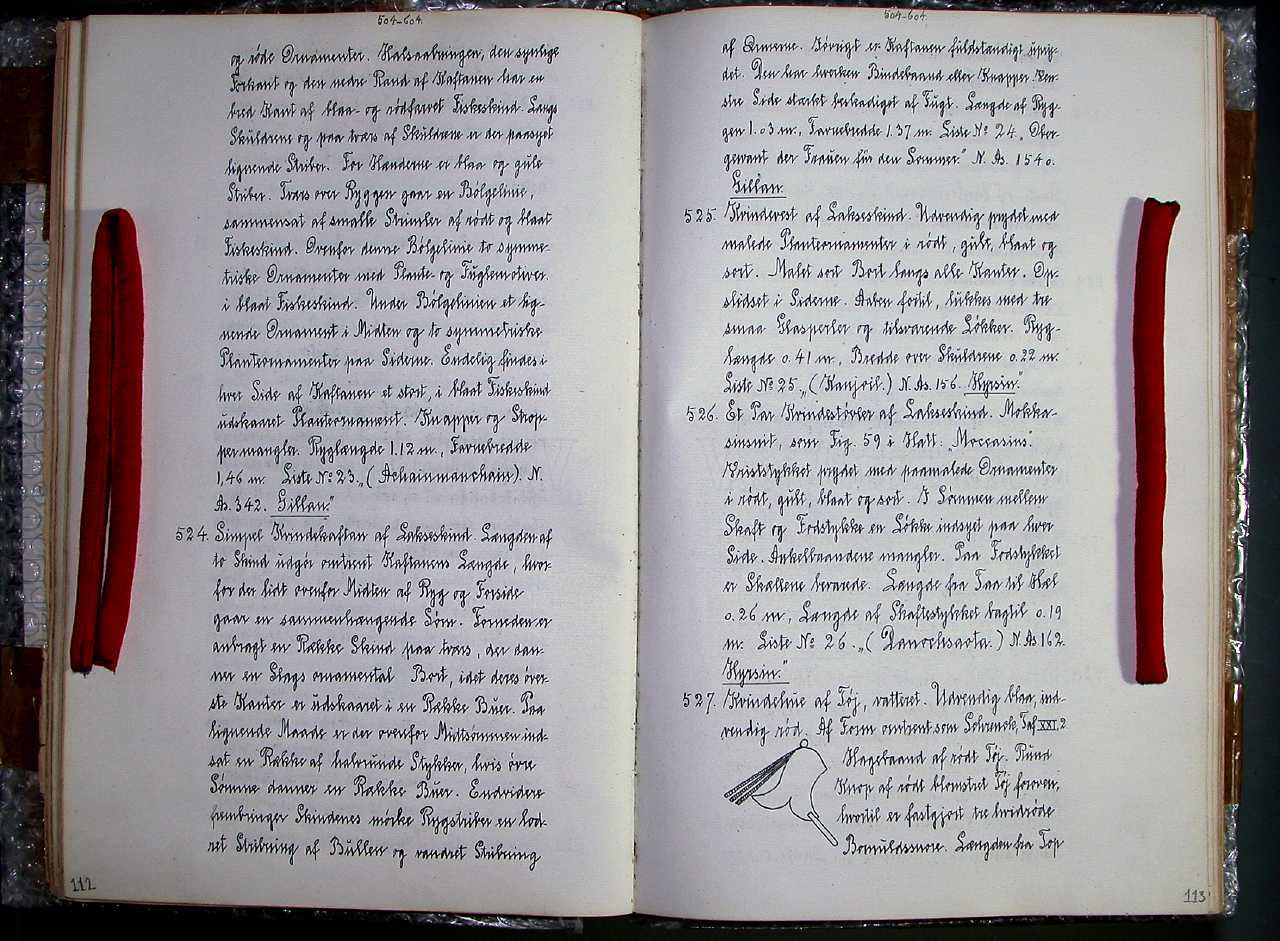 504-604.
og røde Ornamenter. Halsaabningen, den synlige
Forkant og den nedre Rand af Kaftanen har en
bred Kant af blaa- og rødfarvet Fiskeskind. Langs
Skuldrene og paa tværs af Skuldrene er der paasyet
lignende Striber. For Hænderne er blaa og gule
Striber. Tværs over Ryggen gaar en Bölgelinie,
sammensat af smalle Strimler af rødt og blaat
Fiskeskind. Ovenfor denne Bölgelinie to symme-
triske Ornamenter med Plante- og Fuglemotiver.
i blaat Fiskeskind. Under Bölgelinien et lig-
nende Ornament i Midten og to symmetriske
Planteornamenter paa Siderne. Endelig findes i
hver Side af Kaftanen et stort, i blaat Fiskeskind
udskaaret Planteornament. Knapper og Strop-
per mangler. Ryglængde 1.12 m., Favnebredde
1,46 m. Liste № 23. „(Achainmanchain). N.
As. 342. Gillan."
524. Simpel Kvindekaftan af Lakseskind. Længden af
to Skind udgør omtrent Kaftanens Længde, hvor-
for der lidt ovenfor Midten af Ryg og Forside
gaar en sammenhængende Söm. Forneden er
anbragt en Række Skind paa tværs, der dan-
ner en Slags ornamental Bort, idet deres øver-
ste Kanter er udskaaret i en Række Buer. Paa
lignende Maade er der ovenfor Midtsömmen ind-
sat en Række af halvrunde Stykker, hvis övre
Sömme danner en Række Buer. Endvidere
frembringer Skindenes mörke Rygstriber en lod-
ret Stribning af Bullen og vandret Stribning
112
504-604.
af Ærmerne. Iövrigt er Kaftanen fuldstændigt upry-
det. Den har hverken Bindebaand eller Knapper. Ven-
stre Side stærkt beskadiget af Fugt. Længde af Ryg-
gen 1.03 m., Favnebredde 1.37 m. Liste № 24. „Ober-
gewant der Frauen für den Sommer." N. As. 1540.
Gillan.
525. Kvindevest af Lakseskind. Udvendig prydet med
malede Planteornamenter i rödt, gült, blaat og
sort. Malet sort Bort langs alle Kanter. Op-
slidset i Siderne. Aaben fortil, lukkes med tre
smaa Glasperler og tilsvarende Løkker. Ryg-
længde 0.41 m., Bredde over Skuldrene 0.22 m.
Liste № 25. „(Kanjvil.) N. As. 156. Hyrsin."
526. Et Par Kvindestövler af Lakseskind. Mokka-
sinsnit, som Fig. 59 i Hatt: „Moccasins".
Vriststykket prydet med paamalede Ornamenter
i rødt, gült, blaat og sort. I Sömmen mellem
Skaft og Fodstykke en Løkke indsyet paa hver
Side. Ankelbaandene mangler. Paa Fodstykket
er Skællene bevarede. Længde fra Taa til Hæl
0.26 m, Længde af Skaftestykket bagtil 0.19
m. Liste № 26. „( N. As 162.
Hyrsin."
527. Kvindehue af Töj, vatteret. Udvendig blaa, ind-
vendig röd. Af Form omtrent som Schrenck, Taf XXI.2.
Hagebaand af rødt Töj. Rund
Knop af rödt blomstret Töj foroven;
hvortil er fastgjort tre hvidröde
Bomuldssnore. Længden fra Top
113